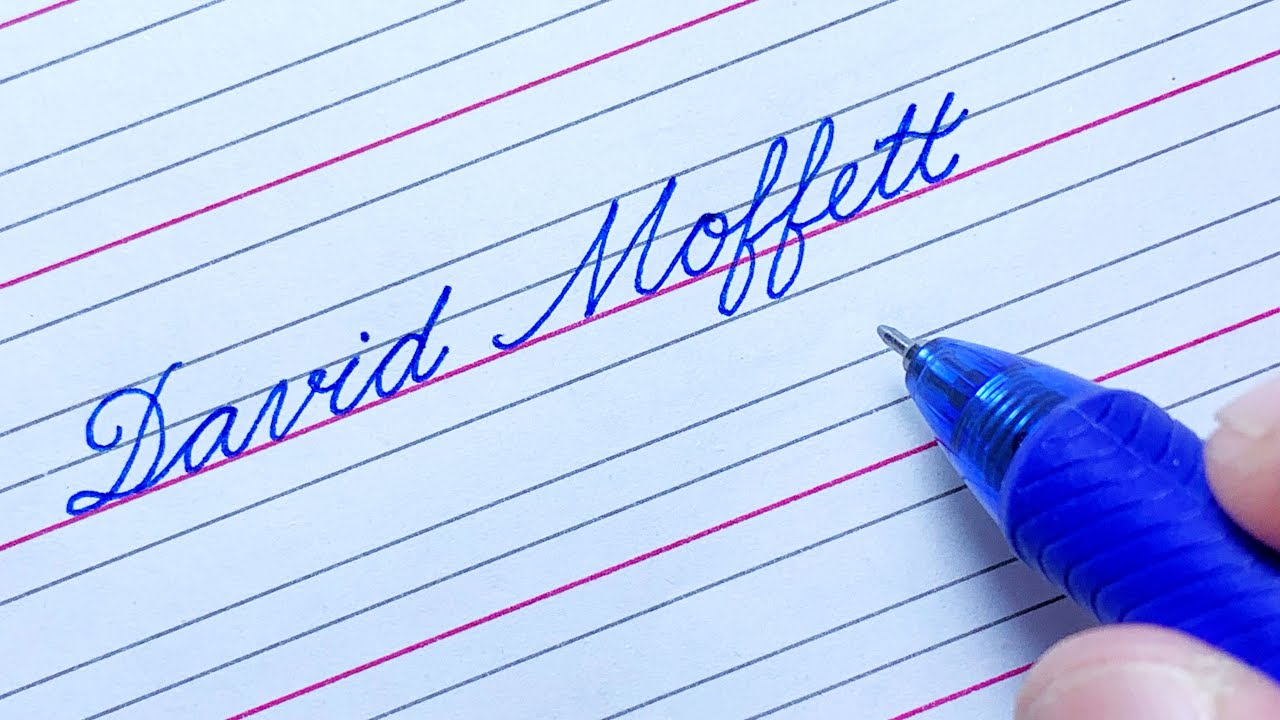 David Moffett